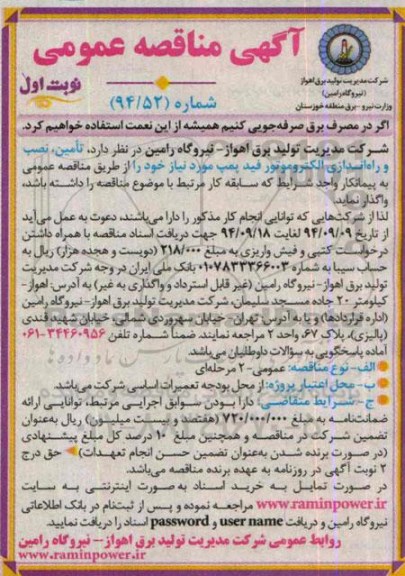 آگهی مناقصه عمومی
شرکت مدیریت تولید برق اهواز
(نیروگاه رامین)
وزارت نیرو - برق منطقه خوزستان
نوبت اول
شماره (۹۴/۵۲)
اگر در مصرف برق صرفه‌جویی کنیم همیشه از این نعمت استفاده خواهیم کرد.
شرکت مدیریت تولید برق اهواز- نیروگاه رامین در نظر دارد، تأمین، نصب
و راه‌اندازی الکتروموتور فید پمپ مورد نیاز خود را از طریق مناقصه عمومی
به پیمانکار واجد شرایط که سابقه کار مرتبط با موضوع مناقصه را داشته باشد،
واگذار نماید.
لذا از شرکت‌هایی که توانایی انجام کار مذکور را دارا می‌باشند، دعوت به عمل می‌آید
از تاریخ ۹۴/۰۹/۰۹ لغایت ۹۴/۰۹/۱۸ جهت دریافت اسناد مناقصه با همراه داشتن
درخواست کتبی و فیش واریزی به مبلغ ۲۱۸/۰۰۰ (دویست و هجده هزار) ریال به
حساب سیبا به شماره ۰۱۰۷۸۳۳۳۶۶۰۰۳ بانک ملی ایران در وجه شرکت مدیریت
تولید برق اهواز-نیروگاه رامین (غیر قابل استرداد و واگذاری به غیر) به آدرس: اهواز-
کیلومتر ۲۰ جاده مسجد سلیمان، شرکت مدیریت تولید برق اهواز-نیروگاه رامین
(اداره قراردادها) و یا به آدرس: تهران- خیابان سهروردی شمالی، خیابان شهید قندی
(پالیزی)، پلاک ۶۷، واحد ۲ مراجعه نمایند. ضمناً شماره تلفن ۳۴۴۶۰۹۵۶-۰۶۱
آماده پاسخگویی به سؤالات داوطلبان می‌باشد.
الف- نوع مناقصه: عمومی- ۲ مرحله‌ای
ب- محل اعتبار پروژه: از محل بودجه تعمیرات اساسی شرکت می‌باشد.
ج- شرایط متقاضی: دارا بودن سوابق اجرایی مرتبط، توانایی ارائه
ضمانت‌نامه به مبلغ ۷۲۰/۰۰۰/۰۰۰ (هفتصد و بیست میلیون) ریال به‌عنوان
تضمین شرکت در مناقصه و همچنین مبلغ ۱۰ درصد کل مبلغ پیشنهادی
(در صورت برنده شدن به‌عنوان تضمین حسن انجام تعهدات) حق درج
۲ نوبت آگهی در روزنامه به عهده برنده مناقصه می‌باشد.
در صورت تمایل به خرید اسناد به صورت اینترنتی به سایت
www.raminpower.ir مراجعه نموده و پس از ثبت‌نام در بانک اطلاعاتی
نیروگاه رامین و دریافت user name و password اسناد را دریافت نمایید.
روابط عمومی شرکت مدیریت تولید برق اهواز- نیروگاه رامین
www.raminpower.ir